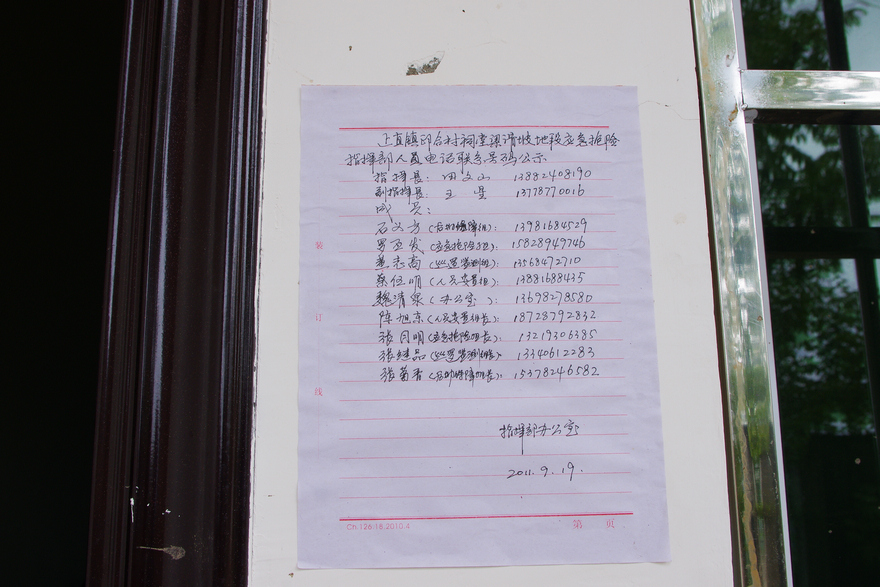 正直镇印台村祠堂梁滑坡地段应急抢险
指挥部人员电话联系号码公示
指挥长: 田文山 13882408190
副指挥长: 王坚 13778770016
成员:
石义方(后勤保障组): 13981684529
罗亚发(应急抢险组): 15828949746
志高(巡逻监测组): 13568472710
蔡位明(人员安置组): 13881688435
魏清泉(办公室): 13698278580
陈旭东(人员安置组长): 18728792832
张月明(应急抢险组长): 13219306385
张继品(巡逻监测组长): 13340612283
张菊香(后勤保障组长): 15378246582
指挥部办公室
2011.9.19.
装
订
线
Ch.126.18.2010.4
第 页